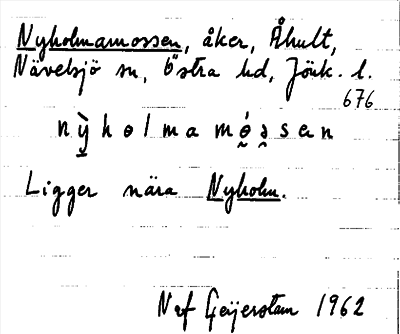 Nyholmamossen, åker, Åhult,
Nävelsjö sn, Östra hd, Jönk. l.
676
nỳholmamó̰ə̯ssen
Ligger nära Nyholm.
Naf Geijerstam 1962